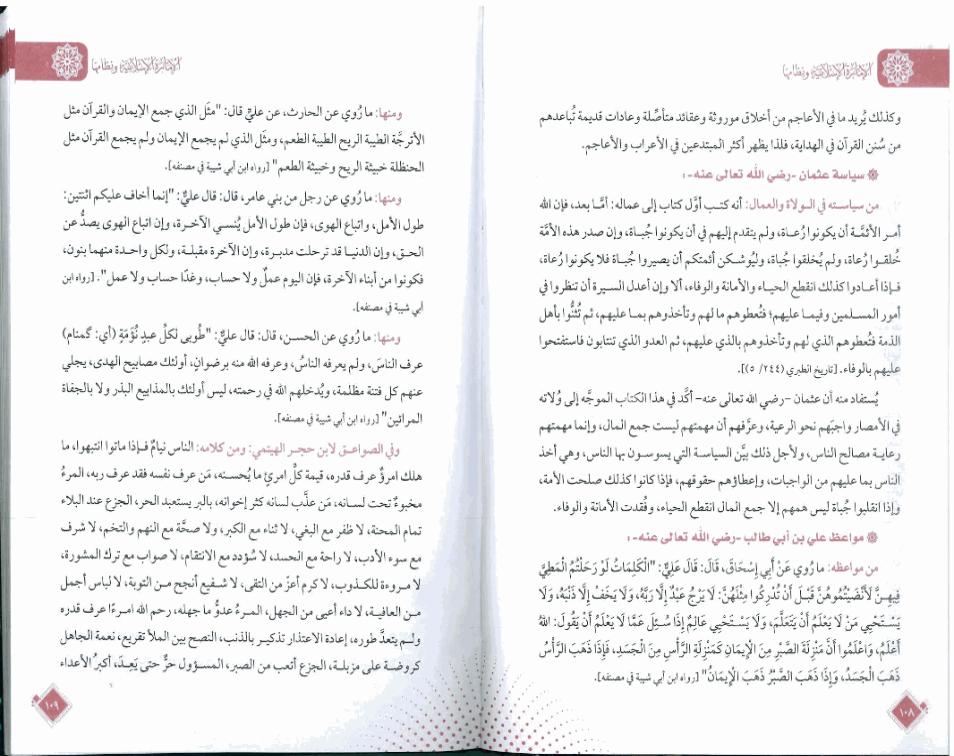 الإمارة الإسلامية ونظامها
وكذلك يُريد ما في الأعاجم من أخلاق موروثة وعقائد متأصِّلة وعادات قديمة تُباعدهم
من سُنن القرآن في الهداية، فلذا يظهر أكثر المبتدعين في الأعراب والأعاجم.
سياسة عثمان -رضي الله تعالى عنه- :
من سياسته في الولاة والعمال: أنه كتب أول كتاب إلى عماله: أمَّا بعد، فإن الله
أمر الأئمَّة أن يكونوا رُعاة، ولم يتقدم إليهم في أن يكونوا جُباة، وإن صدر هذه الأمَّة
خُلقوا رُعاة، ولم يُخلقوا جُباة، وليُوشكن أئمتكم أن يصيروا جُباة فلا يكونوا رُعاة،
فإذا عادوا كذلك انقطع الحياء والأمانة والوفاء، ألا وإن أعدل السيرة أن تنظروا في
أمور المسلمين وفيما عليهم؛ فتُعطوهم ما لهم وتأخذوهم بما عليهم، ثم تُثنُّوا بأهل
الذمة فتُعطوهم الذي لهم وتأخذوهم بالذي عليهم، ثم العدو الذي تنتابون فاستفتحوا
عليهم بالوفاء. [تاريخ الطبري (٢٤٤/ ٥)].
يُستفاد منه أن عثمان -رضي الله تعالى عنه- أكَّد في هذا الكتاب الموجَّه إلى وُلاته
في الأمصار واجبَهم نحو الرعية، وعرَّفهم أن مهمتهم ليست جمع المال، وإنما مهمتهم
رعاية مصالح الناس، ولأجل ذلك بيَّن السياسة التي يسوسون بها الناس، وهي أخذ
الناس بما عليهم من الواجبات، وإعطاؤهم حقوقهم، فإذا كانوا كذلك صلحت الأمة،
وإذا انقلبوا جُباة ليس همهم إلا جمع المال انقطع الحياء، وفُقدت الأمانة والوفاء.
مواعظ علي بن أبي طالب -رضي الله تعالى عنه- :
من مواعظه: ما رُوي عَنْ أَبِي إِسْحَاقَ، قَالَ: قَالَ عَلِيٌّ: "الْكَلِمَاتُ لَوْ رَحَلْتُمُ الْمَطِيَّ
فِيهِنَّ لَأَنْضَيْتُمُوهُنَّ قَبْلَ أَنْ تُدْرِكُوا مِثْلَهُنَّ: لَا يَرْجُ عَبْدٌ إِلَّا رَبَّهُ، وَلَا يَخَفْ إِلَّا ذَنْبَهُ، وَلَا
يَسْتَحْيِي مَنْ لَا يَعْلَمُ أَنْ يَتَعَلَّمَ، وَلَا يَسْتَحْيِي عَالِمٌ إِذَا سُئِلَ عَمَّا لَا يَعْلَمُ أَنْ يَقُولَ: اللهُ
أَعْلَمُ، وَاعْلَمُوا أَنَّ مَنْزِلَةَ الصَّبْرِ مِنَ الْإِيمَانِ كَمَنْزِلَةِ الرَّأْسِ مِنَ الْجَسَدِ، فَإِذَا ذَهَبَ الرَّأْسُ
ذَهَبَ الْجَسَدُ، وَإِذَا ذَهَبَ الصَّبْرُ ذَهَبَ الْإِيمَانُ" [رواه ابن أبي شيبة في مصنفه].
١٠٨
الإمارة الإسلامية ونظامها
ومنها: ما رُوي عن الحارث، عن عليٍّ قال: "مثَل الذي جمع الإيمان والقرآن مثل
الأترجَّة الطيبة الريح الطيبة الطعم، ومثَل الذي لم يجمع الإيمان ولم يجمع القرآن مثل
الحنظلة خبيثة الريح وخبيثة الطعم" [رواه ابن أبي شيبة في مصنفه].
ومنها: ما رُوي عن رجل من بني عامر، قال: قال عليٌّ: "إنما أخاف عليكم اثنتين:
طول الأمل، واتباع الهوى، فإن طول الأمل يُنسي الآخرة، وإن اتباع الهوى يصدُّ عن
الحق، وإن الدنيا قد ترحلت مدبرة، وإن الآخرة مقبلة، ولكل واحدة منهما بنون،
فكونوا من أبناء الآخرة، فإن اليوم عملٌ ولا حساب، وغدًا حساب ولا عمل". [رواه ابن
أبي شيبة في مصنفه].
ومنها: ما رُوي عن الحسن، قال: قال عليٌّ: "طُوبى لكلِّ عبدٍ نُوَّمَةٍ (أي: گمنام)
عرف الناسَ، ولم يعرفه الناسُ، وعرفه الله منه برضوانٍ، أولئك مصابيح الهدى، يجلي
عنهم كل فتنة مظلمة، ويُدخلهم الله في رحمته، ليس أولئك بالمذاييع البذر ولا بالجفاة
المرائين" [رواه ابن أبي شيبة في مصنفه].
وفي الصواعق لابن حجر الهيتمي: ومن كلامه: الناس نيامٌ فإذا ماتوا انتبهوا، ما
هلك امرؤٌ عرف قدره، قيمة كلِّ امرئٍ ما يُحسنه، مَن عرف نفسه فقد عرف ربه، المرءُ
مخبوءٌ تحت لسانه، مَن عذَّب لسانه كثر إخوانه، بالبر يستعبد الحر، الجزع عند البلاء
تمام المحنة، لا ظفر مع البغي، لا ثناء مع الكبر، ولا صحَّة مع النهم والتخم، لا شرف
مع سوء الأدب، لا راحة مع الحسد، لا سُؤدد مع الانتقام، لا صواب مع ترك المشورة،
لا مروءة للكذوب، لا كرم أعزّ من التقى، لا شفيع أنجح من التوبة، لا لباس أجمل
من العافية، لا داء أعيى من الجهل، المرءُ عدوُّ ما جهله، رحم الله امرءًا عرف قدره
ولم يتعدَّ طوره، إعادة الاعتذار تذكير بالذنب، النصح بين الملأ تقريع، نعمة الجاهل
كروضة على مزبلة، الجزع أتعب من الصبر، المسؤول حرٌّ حتى يَعِدَ، أكبرُ الأعداء
١٠٩